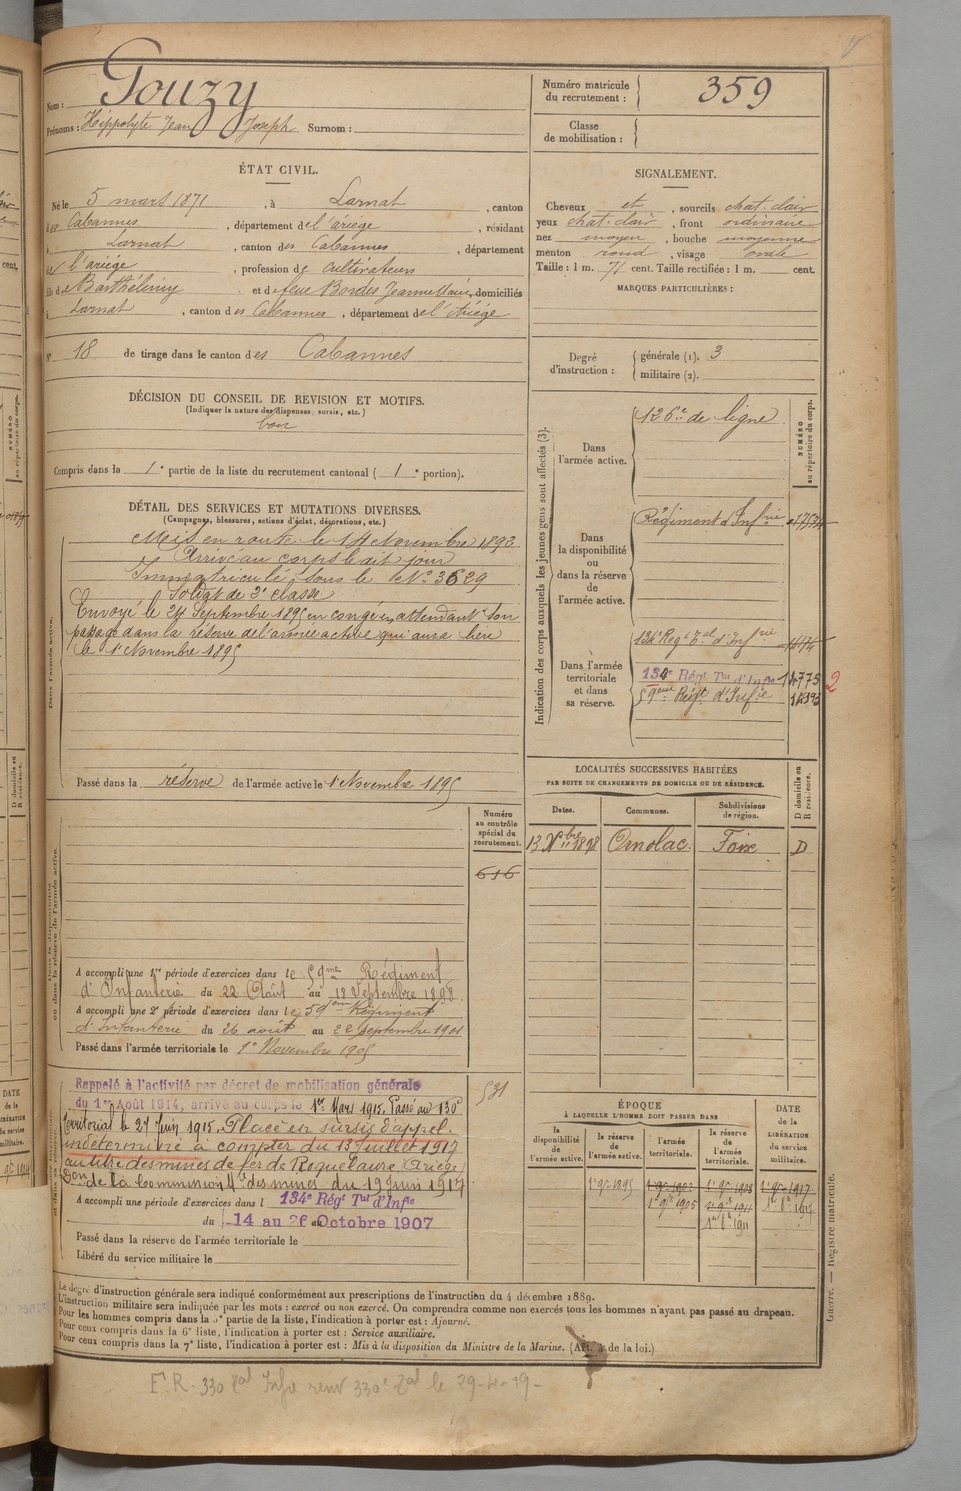 Nom : Gouzy
Prénoms : Hippolyte Jean Joseph Surnom :
Numéro matricule du recrutement : 359
Classe de mobilisation :
ÉTAT CIVIL.
Né le 5 mars 1871, à Larnat, canton
des Cabannes, département de l'ariège, résidant
à Larnat, canton des Cabannes, département
de l'ariège, profession de cultivateur
fils de Barthélémy et de feue Bordes Jeanne Marie, domiciliés
à Larnat, canton des Cabannes, département de l'Ariège
N° 18 de tirage dans le canton des Cabannes
SIGNALEMENT.
Cheveux et, sourcils chat. clair
yeux chat. clair, front ordinaire
nez moyen, bouche moyenne
menton rond, visage ovale
Taille : 1 m. 71 cent. Taille rectifiée : 1 m. cent.
MARQUES PARTICULIÈRES :
Degré d'instruction : générale (1). 3
militaire (2).
DÉCISION DU CONSEIL DE REVISION ET MOTIFS.
(Indiquer la nature des dispenses, sursis, etc.)
bon
Compris dans la 1e partie de la liste du recrutement cantonal (1e portion).
DÉTAIL DES SERVICES ET MUTATIONS DIVERSES.
(Campagnes, blessures, actions d'éclat, décorations, etc.)
Dans l'armée active.
Mis en route le 14 Novembre 1892
Arrivé au corps le dit jour
Immatriculé sous le N° 3629
Soldat de 2e classe
Envoyé le 24 Septembre 1895 en congé en attendant son
passage dans la réserve de l'armée active qui aura lieu
le 1er Novembre 1895
Passé dans la réserve de l'armée active le 1er Novembre 1895
Indication des corps auxquels les jeunes gens sont affectés (3).
NUMÉRO au répertoire du corps.
Dans l'armée active.
126e de ligne
Dans la disponibilité ou dans la réserve de l'armée active.
Régiment d'Infrie
Dans l'armée territoriale et dans sa réserve.
134e Regt Tal d'Infrie
134e Régt Tal d'Infie 14775 2
59eme Régt d'Infie
LOCALITÉS SUCCESSIVES HABITÉES
PAR SUITE DE CHANGEMENTS DE DOMICILE OU DE RÉSIDENCE.
Dates. Communes. Subdivisions de région. D domicile ou R résidence.
13 Nbre 1898 Ornolac Foix D
Numéro au contrôle spécial du recrutement.
616
Dans la disponibilité ou dans la réserve de l'armée active.
A accompli une 1re période d'exercices dans le 59me Régiment
d'Infanterie du 22 Août au 18 Septembre 1898
A accompli une 2e période d'exercices dans le 59eme Régiment
d'Infanterie du 26 août au 22 Septembre 1901
Passé dans l'armée territoriale le 1er Novembre 1905
Rappelé à l'activité par décret de mobilisation générale
du 1er Août 1914, arrivé au corps le 1er Mars 1915. Passé au 130e
territorial le 27 Juin 1915. Placé en sursis d'appel
indéterminé à compter du 13 Juillet 1917
au titre des mines de fer de Roquelaure (Ariège)
Don de la Commission Mre des mines du 19 Juin 1917
A accompli une période d'exercices dans l 134e Régt Tal d'Infie
du 14 au 26 au Octobre 1907
Passé dans la réserve de l'armée territoriale le
Libéré du service militaire le
531
ÉPOQUE
À LAQUELLE L'HOMME DOIT PASSER DANS
la disponibilité de l'armée active. la réserve de l'armée active. l'armée territoriale. la réserve de l'armée territoriale.
DATE DE LA LIBÉRATION DU SERVICE MILITAIRE.
1er 9bre 1895 1er 9bre 1902 1er 9bre 1908 1er 9bre 1917
1er 9bre 1905
Le degré d'instruction générale sera indiqué conformément aux prescriptions de l'instruction du 4 décembre 1889.
L'instruction militaire sera indiquée par les mots : exercé ou non exercé. On comprendra comme non exercés tous les hommes n'ayant pas passé au drapeau.
Pour les hommes compris dans la 5e partie de la liste, l'indication à porter est : Ajourné.
Pour ceux compris dans la 6e liste, l'indication à porter est : Service auxiliaire.
Pour ceux compris dans la 7e liste, l'indication à porter est : Mis à la disposition du Ministre de la Marine. (Art. 4 de la loi.)
Guerre. — Registre matricule.
F. R. 330 Tal Infie renv 330e Tal le 29-4-19-